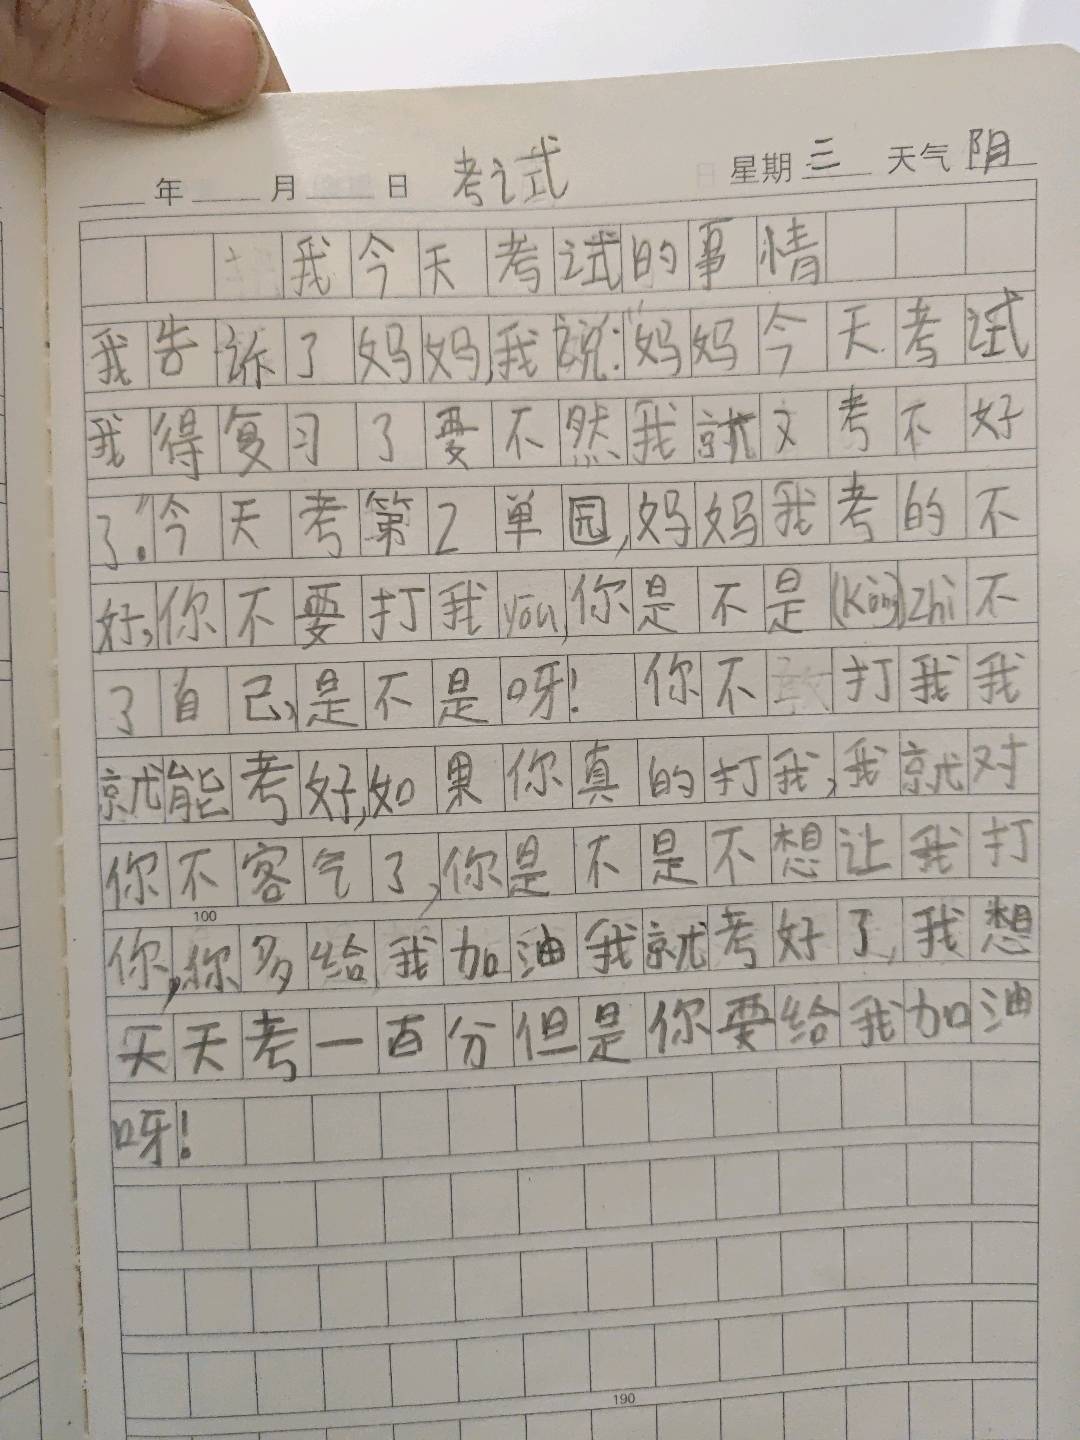 年 月 日 考试 星期三 天气阴
我今天考试的事情
我告诉了妈妈,我说:“妈妈今天考试
我得复习了要不然我就文考不好
了.”今天考第2单园,妈妈我考的不
好,你不要打我you,你是不是(Kòng)Zhi不
了自己,是不是呀!你不打我我
就能考好,如果你真的打我,我就对
你不客气了,你是不是不想让我打
100
你,你多给我加油我就考好了,我想
天天考一百分但是你要给我加油
呀!
190